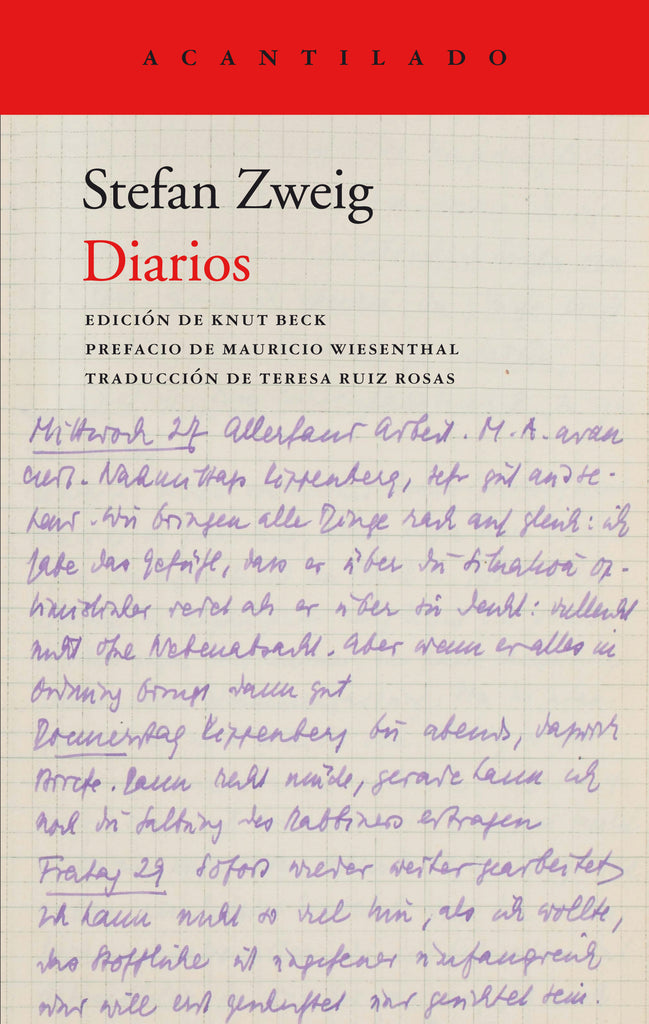 ACANTILADO
Stefan Zweig
Diarios
EDICIÓN DE KNUT BECK
PREFACIO DE MAURICIO WIESENTHAL
TRADUCCIÓN DE TERESA RUIZ ROSAS
Mittwoch 27 Allerhand Arbeit. M. A. avan
ciert. Nachmittags Kippenberg, sehr gut
Wir bringen alle Dinge rasch auf gleich: ich
habe das Gefühl, dass er über die Situation op-
timistischer redet als er über sie denkt: vielleicht
nicht ohne Nebenabsicht. Aber wenn er alles in
Ordnung bringt dann gut
Donnerstag Kippenberg bis abends, dazwisch
Briefe. Dann recht müde, gerade kann ich
noch die Salbung des Rabbiners ertragen
Freitag 29 Sofort wieder weiter gearbeitet
ich kann nicht so viel tun, als ich wollte,
das Stoffliche ist ungeheuer umfangreich
und will erst gesichtet sein.